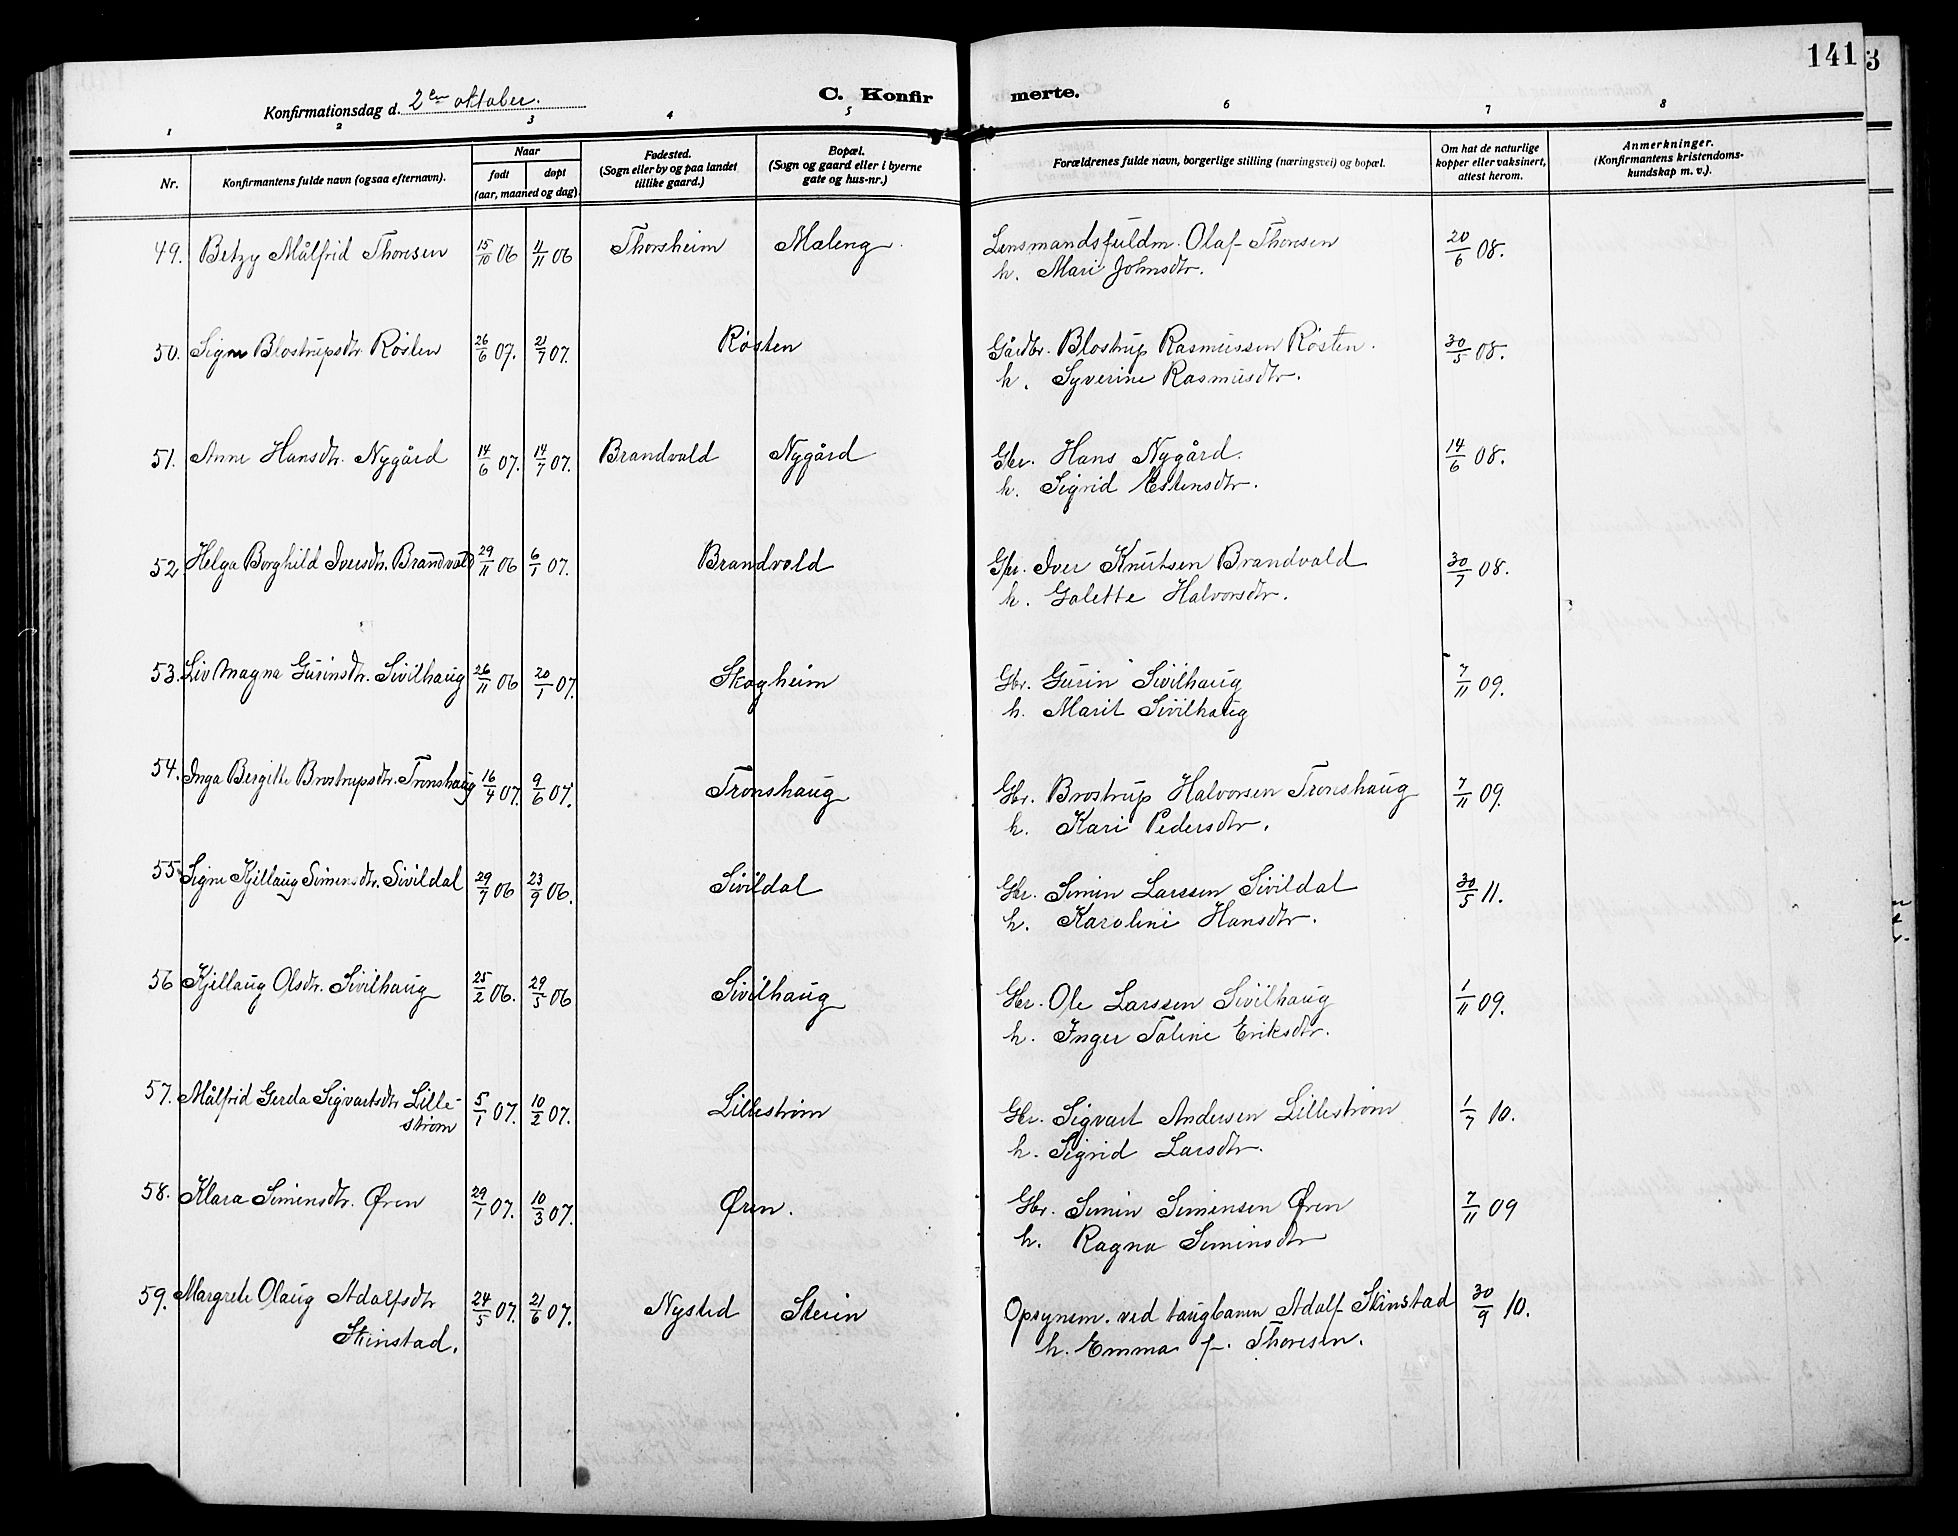 141
3
Konfirmationsdag d. 2den oktober.
C. Konfirmerte.
1 2 3 4 5 6 7 8
Nr.
Konfirmantens fulde navn (ogsaa efternavn).
Naar
født
døpt
(aar, maaned og dag)
Fødested.
(Sogn eller by og paa landet
tillike gaard.)
Bopæl.
(Sogn og gaard eller i byerne
gate og hus-nr.)
Forældrenes fulde navn, borgerlige stilling (næringsvei) og bopæl.
Om hat de naturlige
kopper eller vaksinert,
attest herom.
Anmerkninger.
(Konfirmantens kristendoms-
kundskap m. v.).
49. Betzy Målfrid Thoresen 15/10 06 4/11 06 Thorsheim Maleng. Lensmandsfuldm. Olaf Thoresen 20/6 08.
h. Mari Johnsdtr.
50. Signe Blostrupsdtr. Røsten 26/6 07. 21/7 07. Røsten Gårdbr. Blostrup Rasmussen Røsten. 30/5 08.
h. Syverine Rasmusdtr.
51. Anne Hansdtr. Nygård 14/6 07. 14/7 07. Brandvald Nygård Gbr. Hans Nygård. 14/6 08.
h. Sigrid Estensdtr.
52. Helga Borghild Iversdtr. Brandvold 29/11 06 6/1 07. Brandvold Gbr. Iver Knutsen Brandvald 30/7 08.
h. Golette Halvorsdtr.
53. Liv Magna Gurinsdtr. Sivilhaug 26/11 06 20/1 07. Skogheim Gbr. Gurin Sivilhaug 7/11 09.
h. Marit Sivilhaug
54. Inga Bergitte Brostrupsdtr. Tronshaug 16/4 07. 9/6 07. Tronshaug Gbr. Brostrup Halvorsen Tronshaug 7/11 09.
h. Kari Pedersdtr.
55. Signe Kjellaug Simensdtr. Sivildal 29/7 06 23/9 06. Sivildal Gbr. Simen Larssen Sivildal 30/5 11.
h. Karoline Hansdtr.
56 Kjellaug Olsdtr. Sivilhaug 25/2 06. 29/5 06 Sivilhaug Gbr. Ole Larssen Sivilhaug 1/11 09.
h. Inger Taline Eriksdtr.
57. Målfrid Gerda Sigvartsdtr Lille-
strøm 5/1 07. 10/2 07. Lillestrøm Gbr. Sigvart Andersen Lillestrøm 1/7 10.
h. Sigrid Larsdtr.
58. Klara Simensdtr. Øren 29/1 07. 10/3 07. Øren. Gbr. Simen Simensen Øren 7/11 09
h. Ragna Simensdtr
59. Margrete Olaug Adolfsdtr
Skinstad. 24/5 07. 21/6 07. Nysted Steien Opsynsm. ved taugbanen Adolf Skinstad 30/9 10.
h. Emma f. Thoresen.